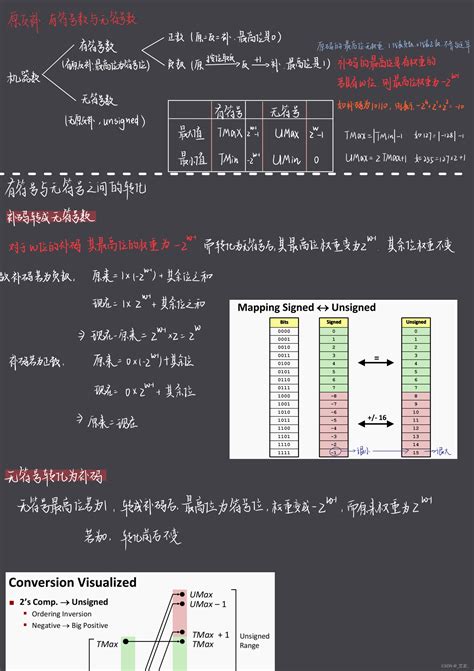 原反补 有符号数与无符号数
机器数
有符号数
(有原反补.最高位为符号位)
正数 (原=反=补.最高位是0)
负数 (原 按位取反→ 反 +1→ 补.最高位是1)
无符号数
(无原反补, unsigned)
原码的最高位无权重
补码的最高位是有权重的
若具有w位 则最高位权重为 -2^(w-1)
有符号 无符号
最大值 TMax 2^(w-1)-1 UMax 2^w-1
最小值 TMin -2^(w-1) UMin 0
TMax=|TMin|-1 如127=|-128|-1
UMax=2TMax+1 如255=127×2+1
有符号与无符号之间的转化
补码转成无符号数
对于w位的补码 其最高位的权重为 -2^(w-1) 而转化为无符号后,其最高位权重变为2^(w-1) 其余位权重不变
补码若为负数, 原来=1×(-2^(w-1))+其余位之和
现在=1×2^(w-1)+其余位之和
⇒ 现在-原来=2^(w-1)×2=2^w
补码若为正数, 原来=0×(-2^(w-1))+其余位
现在=0×2^(w-1)+其余位
⇒ 原来=现在
Mapping Signed ↔ Unsigned
Bits Signed Unsigned
0000 0 0
0001 1 1
0010 2 2
0011 3 3
0100 4 4
0101 5 5
0110 6 6
0111 7 7
1000 -8 8
1001 -7 9
1010 -6 10
1011 -5 11
1100 -4 12
1101 -3 13
1110 -2 14
1111 -1 15
=
+/- 16
最大
无符号转化为补码
无符号最高位若为1, 转成补码后,最高位为符号位,权重变成-2^(w-1),而原来权重为2^(w-1)
若为0, 转化前后不变
Conversion Visualized
2's Comp. → Unsigned
Ordering Inversion
Negative → Big Positive
UMax
UMax – 1
TMax + 1
TMax
TMax
Unsigned
Range